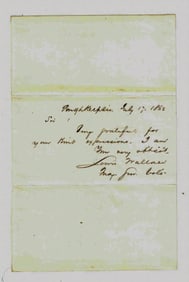 Poughkeepsie July 17, 1862
Sir
Very grateful for
your kind expressions. I am
Your very obt. svt.
Lewis Wallace
Maj. Gen. Vols.